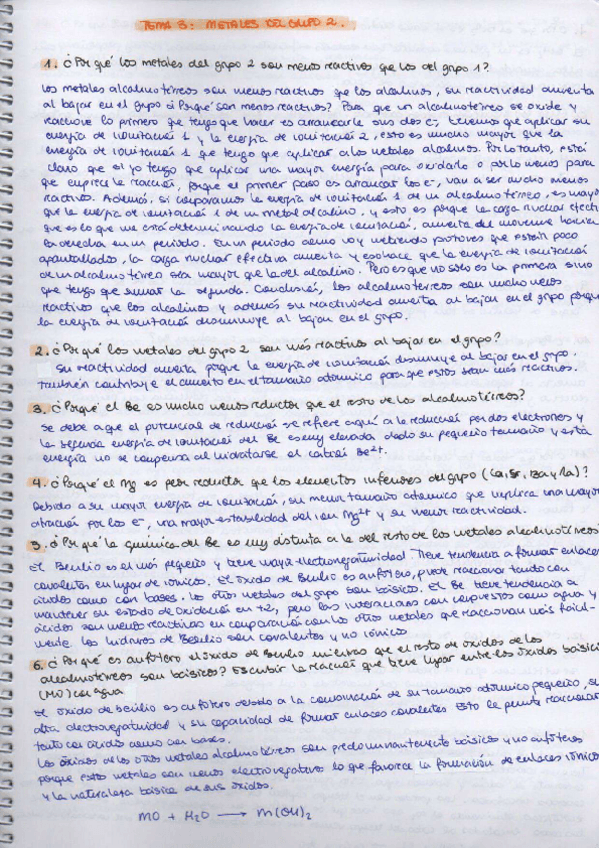 TEMA 3: METALES DEL GRUPO 2.
1. ¿Por qué los metales del grupo 2 son menos reactivos que los del grupo 1?
Los metales alcalinotérreos son menos reactivos que los alcalinos, su reactividad aumenta
al bajar en el grupo ¿Por qué son menos reactivos? Para que un alcalinotérreo se oxide y
reaccione lo primero que tengo que hacer es arrancarle sus dos e-, tenemos que aplicar su
energía de ionización 1 y la energía de ionización 2, esto es mucho mayor que la
energía de ionización 1 que tengo que aplicar a los metales alcalinos. Por lo tanto, está
claro que si yo tengo que aplicar una mayor energía para oxidarlo o por lo menos para
que empiece la reacción, porque el primer paso es arrancar los e-, van a ser mucho menos
reactivos. Además, si comparamos la energía de ionización 1 de un alcalinotérreo, es mayor
que la energía de ionización 1 de un metal alcalino. y esto es porque la carga nuclear efecti
que es lo que me está determinando la energía de ionización, aumenta al moverme hacia
la derecha en un periodo. En un periodo como voy metiendo protones que están poco
apantallados, la carga nuclear efectiva aumenta y eso hace que la energía de ionización
de un alcalinotérreo sea mayor que la del alcalino. Pero es que no solo es la primera sino
que tengo que sumar la segunda. Conclusión, los alcalinotérreos son mucho menos
reactivos que los alcalinos y además su reactividad aumenta al bajar en el grupo porque
la energía de ionización disminuye al bajar en el grupo.
2. ¿Por qué los metales del grupo 2 son más reactivos al bajar en el grupo?
Su reactividad aumenta porque la energía de ionización disminuye al bajar en el grupo.
También contribuye el aumento en el tamaño atómico para que estos sean más reactivos.
3. ¿Por qué el Be es mucho menos reductor que el resto de los alcalinotérreos?
Se debe a que el potencial de reducción se refiere aquí a la reducción por dos electrones y
la segunda energía de ionización del Be es muy elevada dado su pequeño tamaño y esta
energía no se compensa al hidratarse el catión Be2+.
4. ¿Por qué el Mg es peor reductor que los elementos inferiores del grupo (Ca, Sr, Ba y Ra)?
Debido a su mayor energía de ionización, su menor tamaño atómico que implica una mayor
atracción por los e-, una mayor estabilidad del ion Mg2+ y su menor reactividad.
5. ¿Por qué la química del Be es muy distinta a la del resto de los metales alcalinotérreos?
El Berilio es el más pequeño y tiene mayor electronegatividad. Tiene tendencia a formar enlaces
covalentes en lugar de iónicos. El óxido de Berilio es anfótero, puede reaccionar tanto con
ácidos como con bases. Los otros metales del grupo son básicos. El Be tiene tendencia a
mantener su estado de oxidación en +2, pero las interacciones con compuestos como agua y
ácidos son menos reactivas en comparación con los otros metales que reaccionan más fácil-
mente. Los hidruros de Berilio son covalentes y no iónicos
6. ¿Por qué es anfótero el óxido de Berilio mientras que el resto de óxidos de los
alcalinotérreos son básicos? Escribir la reacción que tiene lugar entre los óxidos básicos
(MO) con agua
El óxido de berilio es anfótero debido a la combinación de su tamaño atómico pequeño, su
alta electronegatividad y su capacidad de formar enlaces covalentes. Esto le permite reaccionar
tanto con ácidos como con bases.
Los óxidos de los otros metales alcalinotérreos son predominantemente básicos y no anfóteros
porque estos metales son menos electronegativos lo que favorece la formación de enlaces iónicos
y la naturaleza básica de sus óxidos.
MO + H2O → M(OH)2